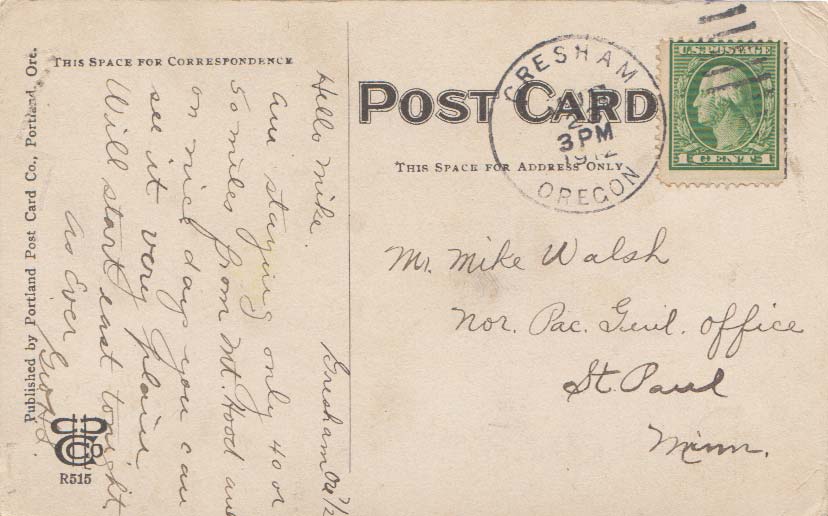 THIS SPACE FOR CORRESPONDENCE
POST CARD
THIS SPACE FOR ADDRESS ONLY
GRESHAM
25
3 PM
1912
OREGON
U.S. POSTAGE
1 CENT 1
Gresham
Hello Mike.
am staying only 40 or
50 miles from Mt. Hood and
on nice days you can
see it very plain.
Will start east tonight.
As Ever
Mr. Mike Walsh
Nor. Pac. Genl. Office
St. Paul
Minn.
Published by Portland Post Card Co., Portland, Ore.
R515